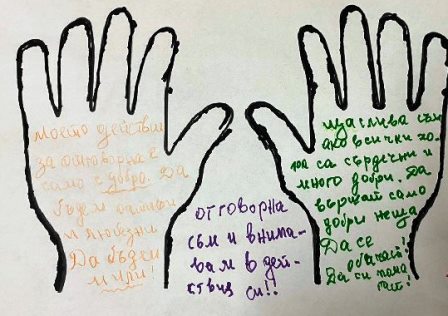 Моето действи
за отговорна е
само с добро. Да
бъдем
и любезни
Да бъдхи
мили!
отговорна
съм и внима-
вам в дей-
ствия
си!!
щаслива съм
ако всички хо-
ра са сърдечни и
много добри. Да
вършат само
добри неща
Да се
обичат!
Да си пома
гат!